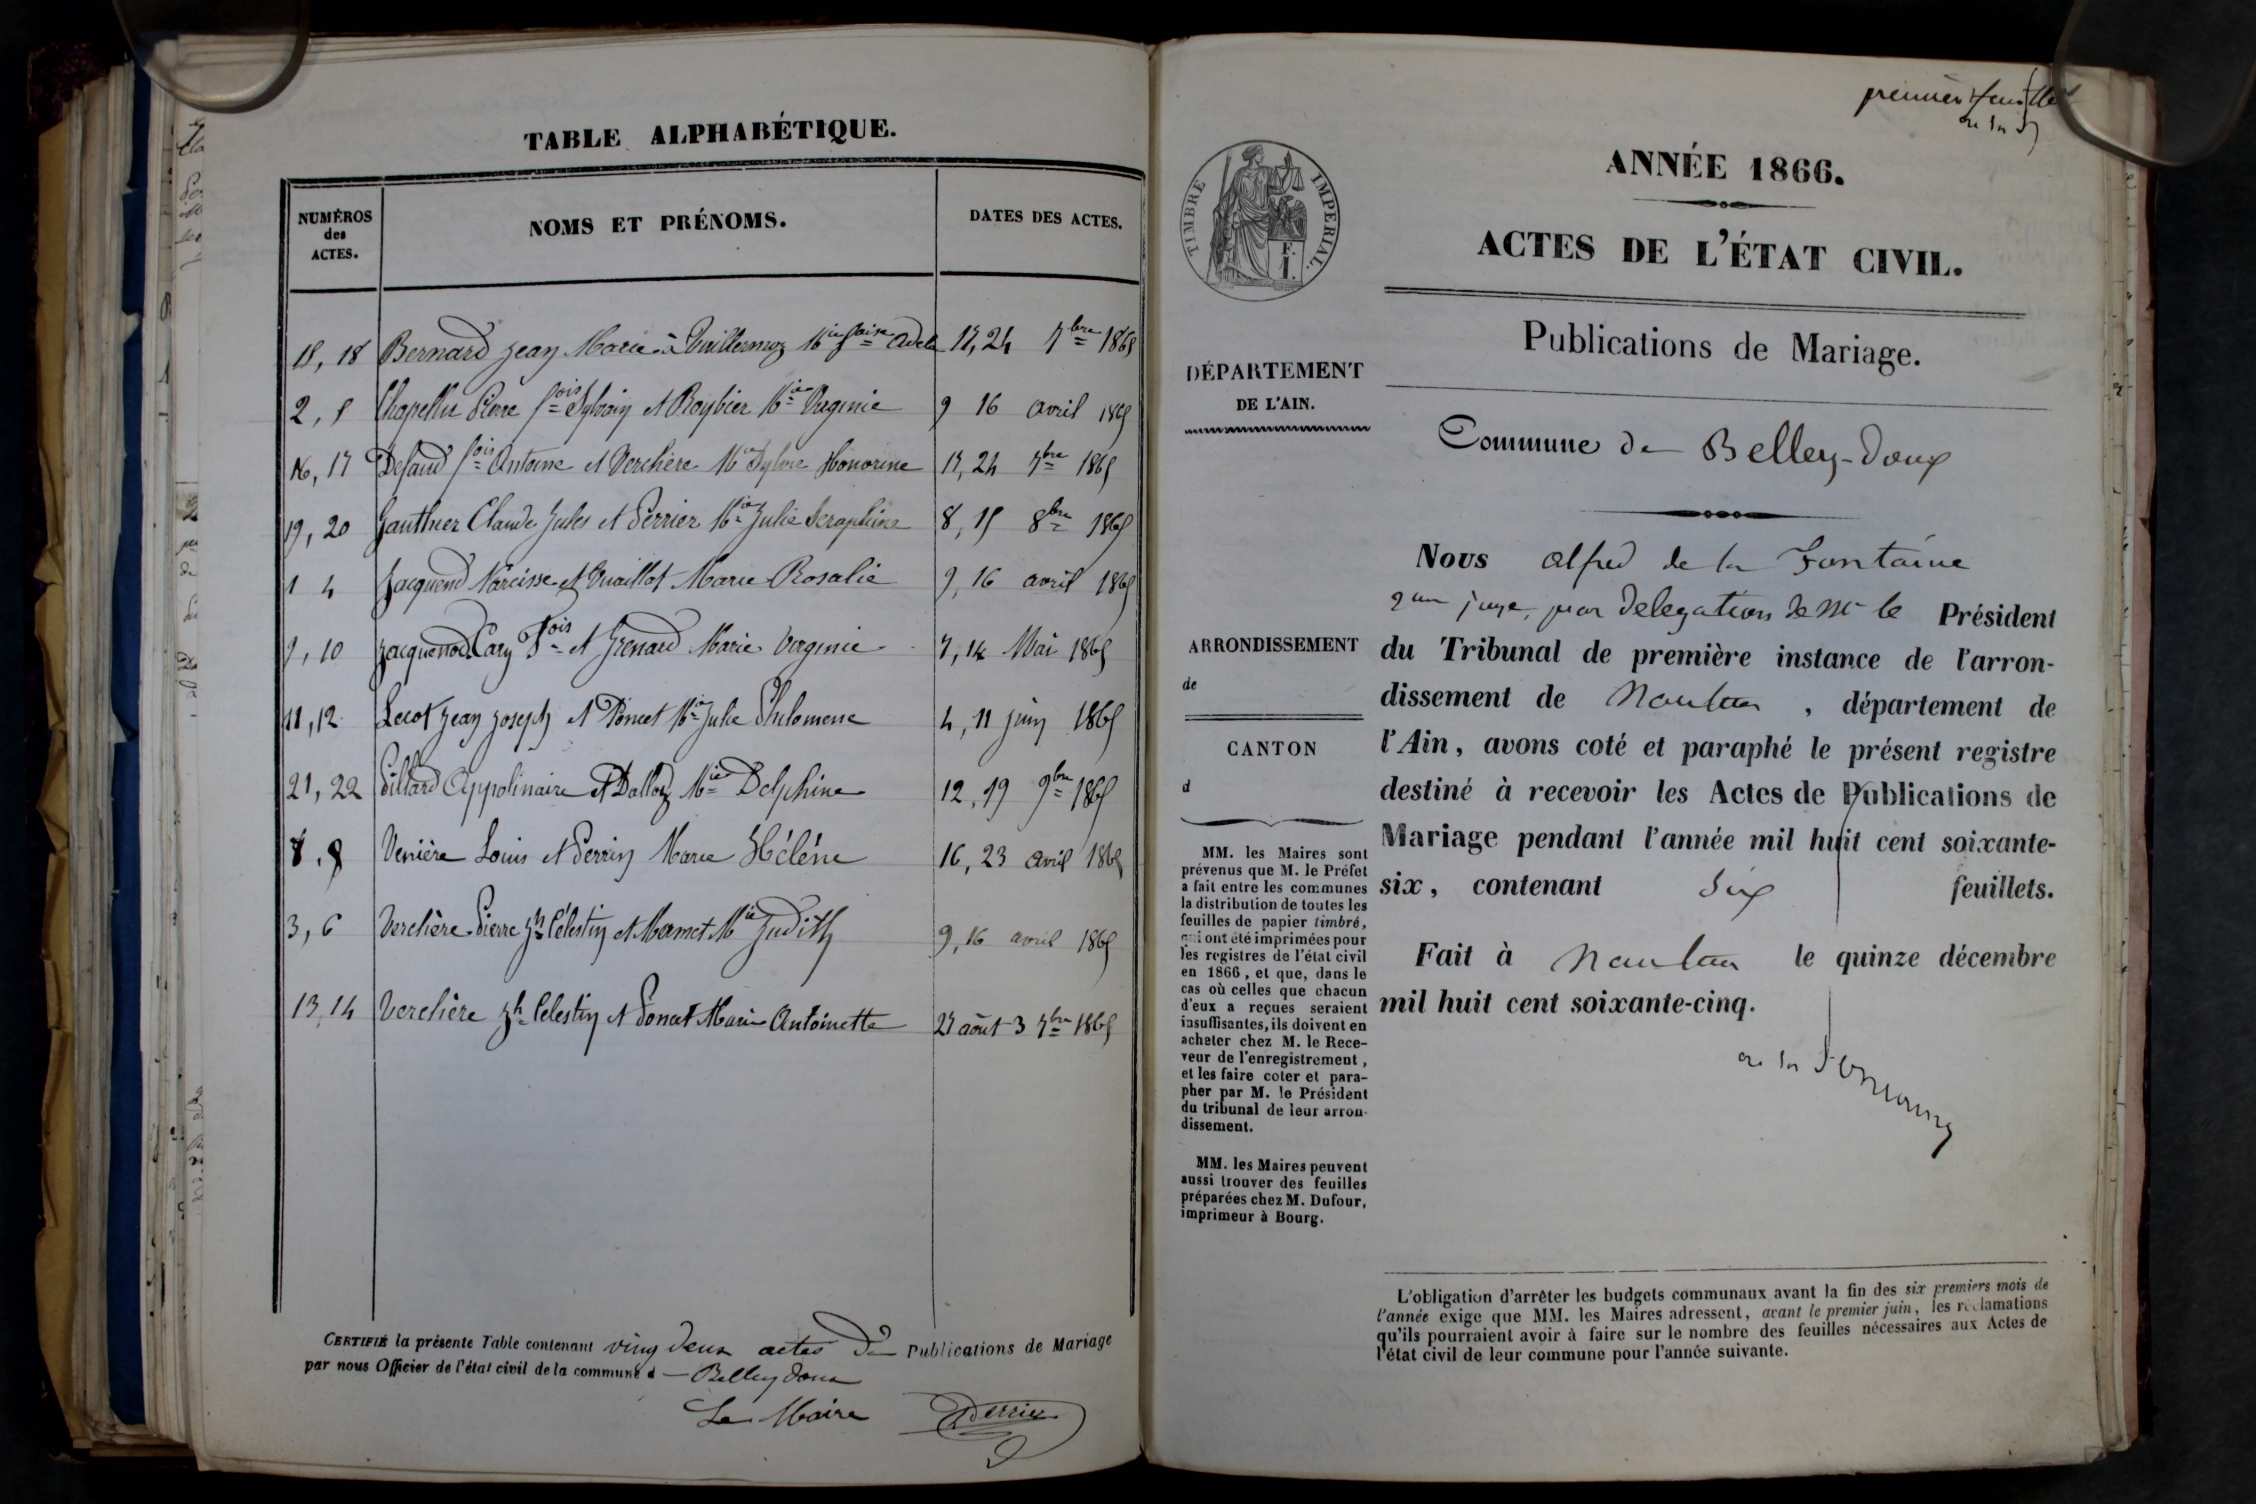 TABLE ALPHABÉTIQUE.
NUMÉROS
des
ACTES.
NOMS ET PRÉNOMS.
DATES DES ACTES.
18, 18 Bernard Jean Marie à Guillermoz Mie Adele 17, 24 7bre 1865
2, 5 Chapellu Pierre fois Sylvain et Roybier Mie Virginie 9 16 avril 1865
16, 17 Defaud fois Antoine et Verchère Mie Sylvie Honorine 17, 24 7bre 1865
19, 20 Gauthier Claude Jules et Perrier Mie Julie Seraphine 8, 15 8bre 1865
1 4 Jacquend Narcisse et Vuaillat Marie Rosalie 9, 16 avril 1865
9, 10 Jacquenod Cary fois et Grenard Marie Virginie 7, 14 Mai 1865
11, 12 Lecot Jean Joseph et Poncet Mie Julie Philomene 4, 11 juin 1865
21, 22 Pillard Appolinaire et Dalloz Mie Delphine 12, 19 9bre 1865
8 Venière Louis et Perrin Marie Hélène 16, 23 avril 1865
3, 6 Verchère Pierre Jh Célestin et Mermet Mie Judith 9, 16 avril 1865
13, 14 Verchère Jh Celestin et Poncet Marie Antoinette 27 août 3 7bre 1865
CERTIFIÉ la présente Table contenant ving deux actes De Publications de Mariage
par nous Officier de l'état civil de la commune d Belleydoux
Le Maire
Perrier
premier feuillet
de la F
TIMBRE IMPERIAL.
F.
1.
ANNÉE 1866.
ACTES DE L'ÉTAT CIVIL.
Publications de Mariage.
DÉPARTEMENT
DE L'AIN.
Commune de Belley-Doux
ARRONDISSEMENT
de
CANTON
d
MM. les Maires sont
prévenus que M. le Préfet
a fait entre les communes
la distribution de toutes les
feuilles de papier timbré,
qui ont été imprimées pour
les registres de l'état civil
en 1866, et que, dans le
cas où celles que chacun
d'eux a reçues seraient
insuffisantes, ils doivent en
acheter chez M. le Rece-
veur de l'enregistrement,
et les faire coter et para-
pher par M. le Président
du tribunal de leur arron-
dissement.
MM. les Maires peuvent
aussi trouver des feuilles
préparées chez M. Dufour,
imprimeur à Bourg.
Nous alfred de la Fontaine
juge, par delegation de Mr le Président
du Tribunal de première instance de l'arron-
dissement de Nantua, département de
l'Ain, avons coté et paraphé le présent registre
destiné à recevoir les Actes de Publications de
Mariage pendant l'année mil huit cent soixante-
six, contenant six feuillets.
Fait à Nantua le quinze décembre
mil huit cent soixante-cinq.
de la Fontaine
L'obligation d'arrêter les budgets communaux avant la fin des six premiers mois de
l'année exige que MM. les Maires adressent, avant le premier juin, les réclamations
qu'ils pourraient avoir à faire sur le nombre des feuilles nécessaires aux Actes de
l'état civil de leur commune pour l'année suivante.